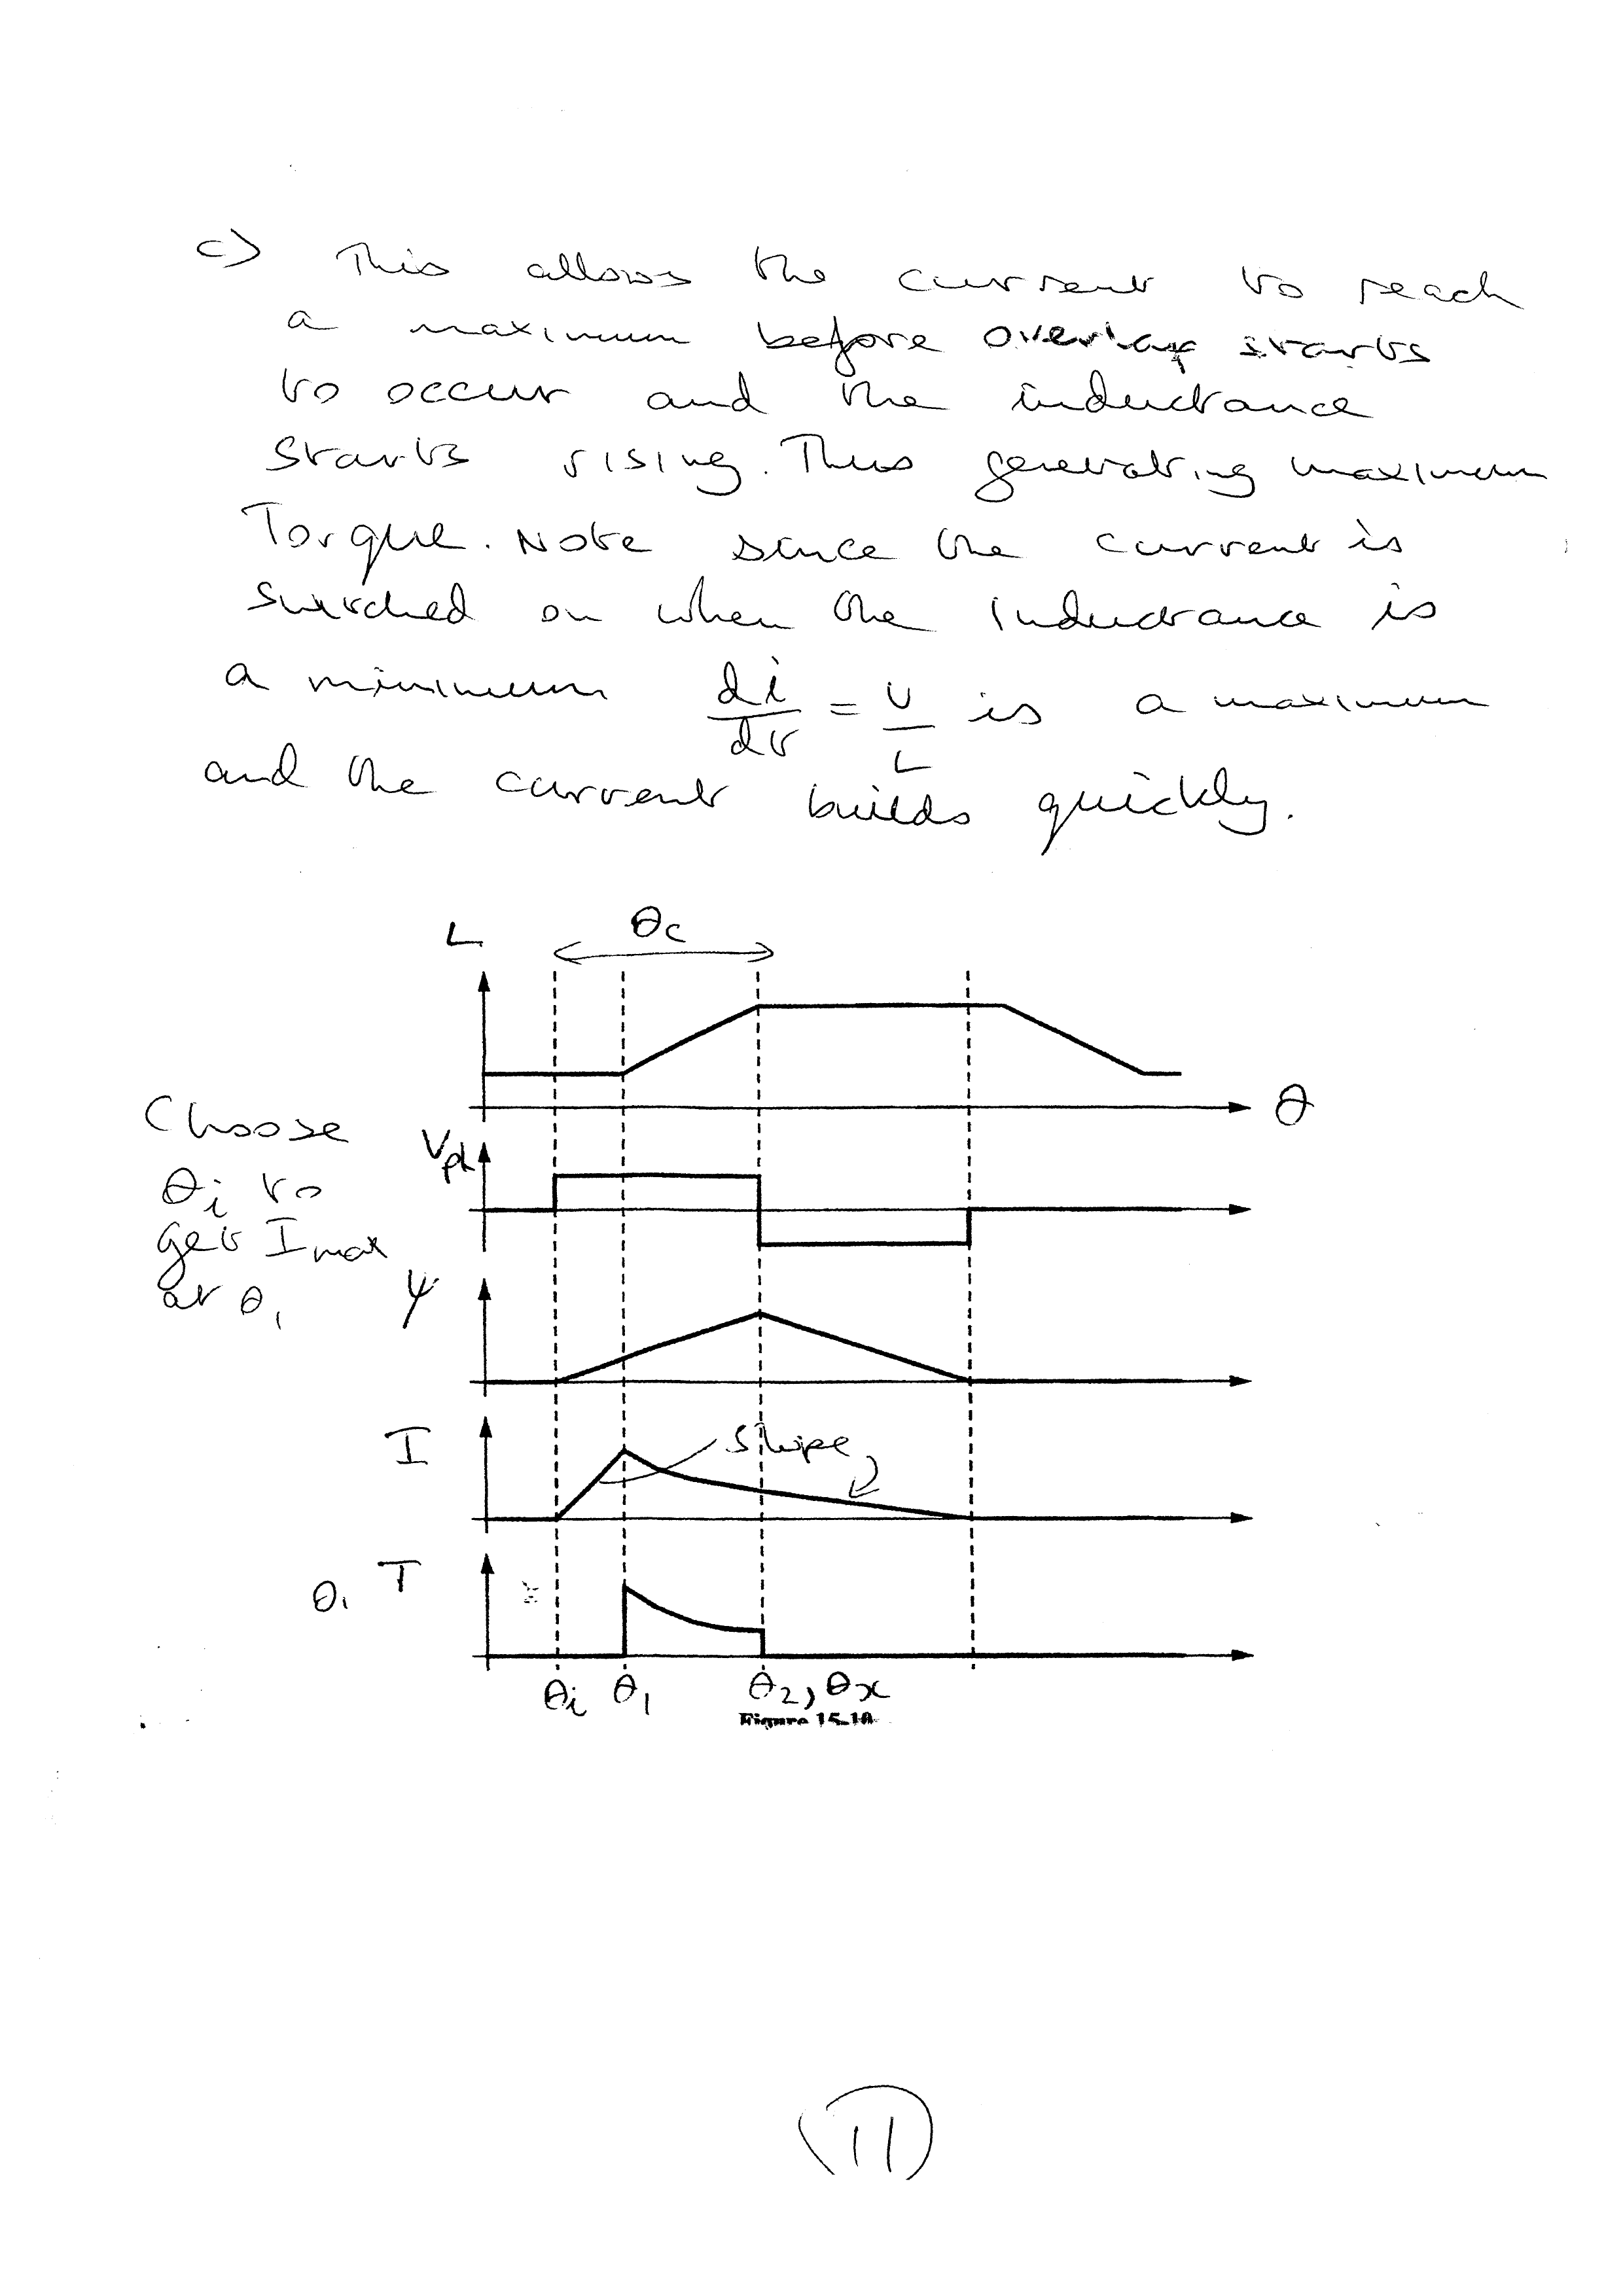 c) This allows the current to reach
a maximum before overlap starts
to occur and the inductance
starts rising. Thus generating maximum
Torque. Note since the current is
switched on when the inductance is
a minimum di/dt = v/L is a maximum
and the current builds quickly.
θc
L
θ
Choose
θi to
get Imax
at θ1
Vph
ψ
I
slope
θ1 T
θi θ1 θ2, θx
Figure 15.10
11